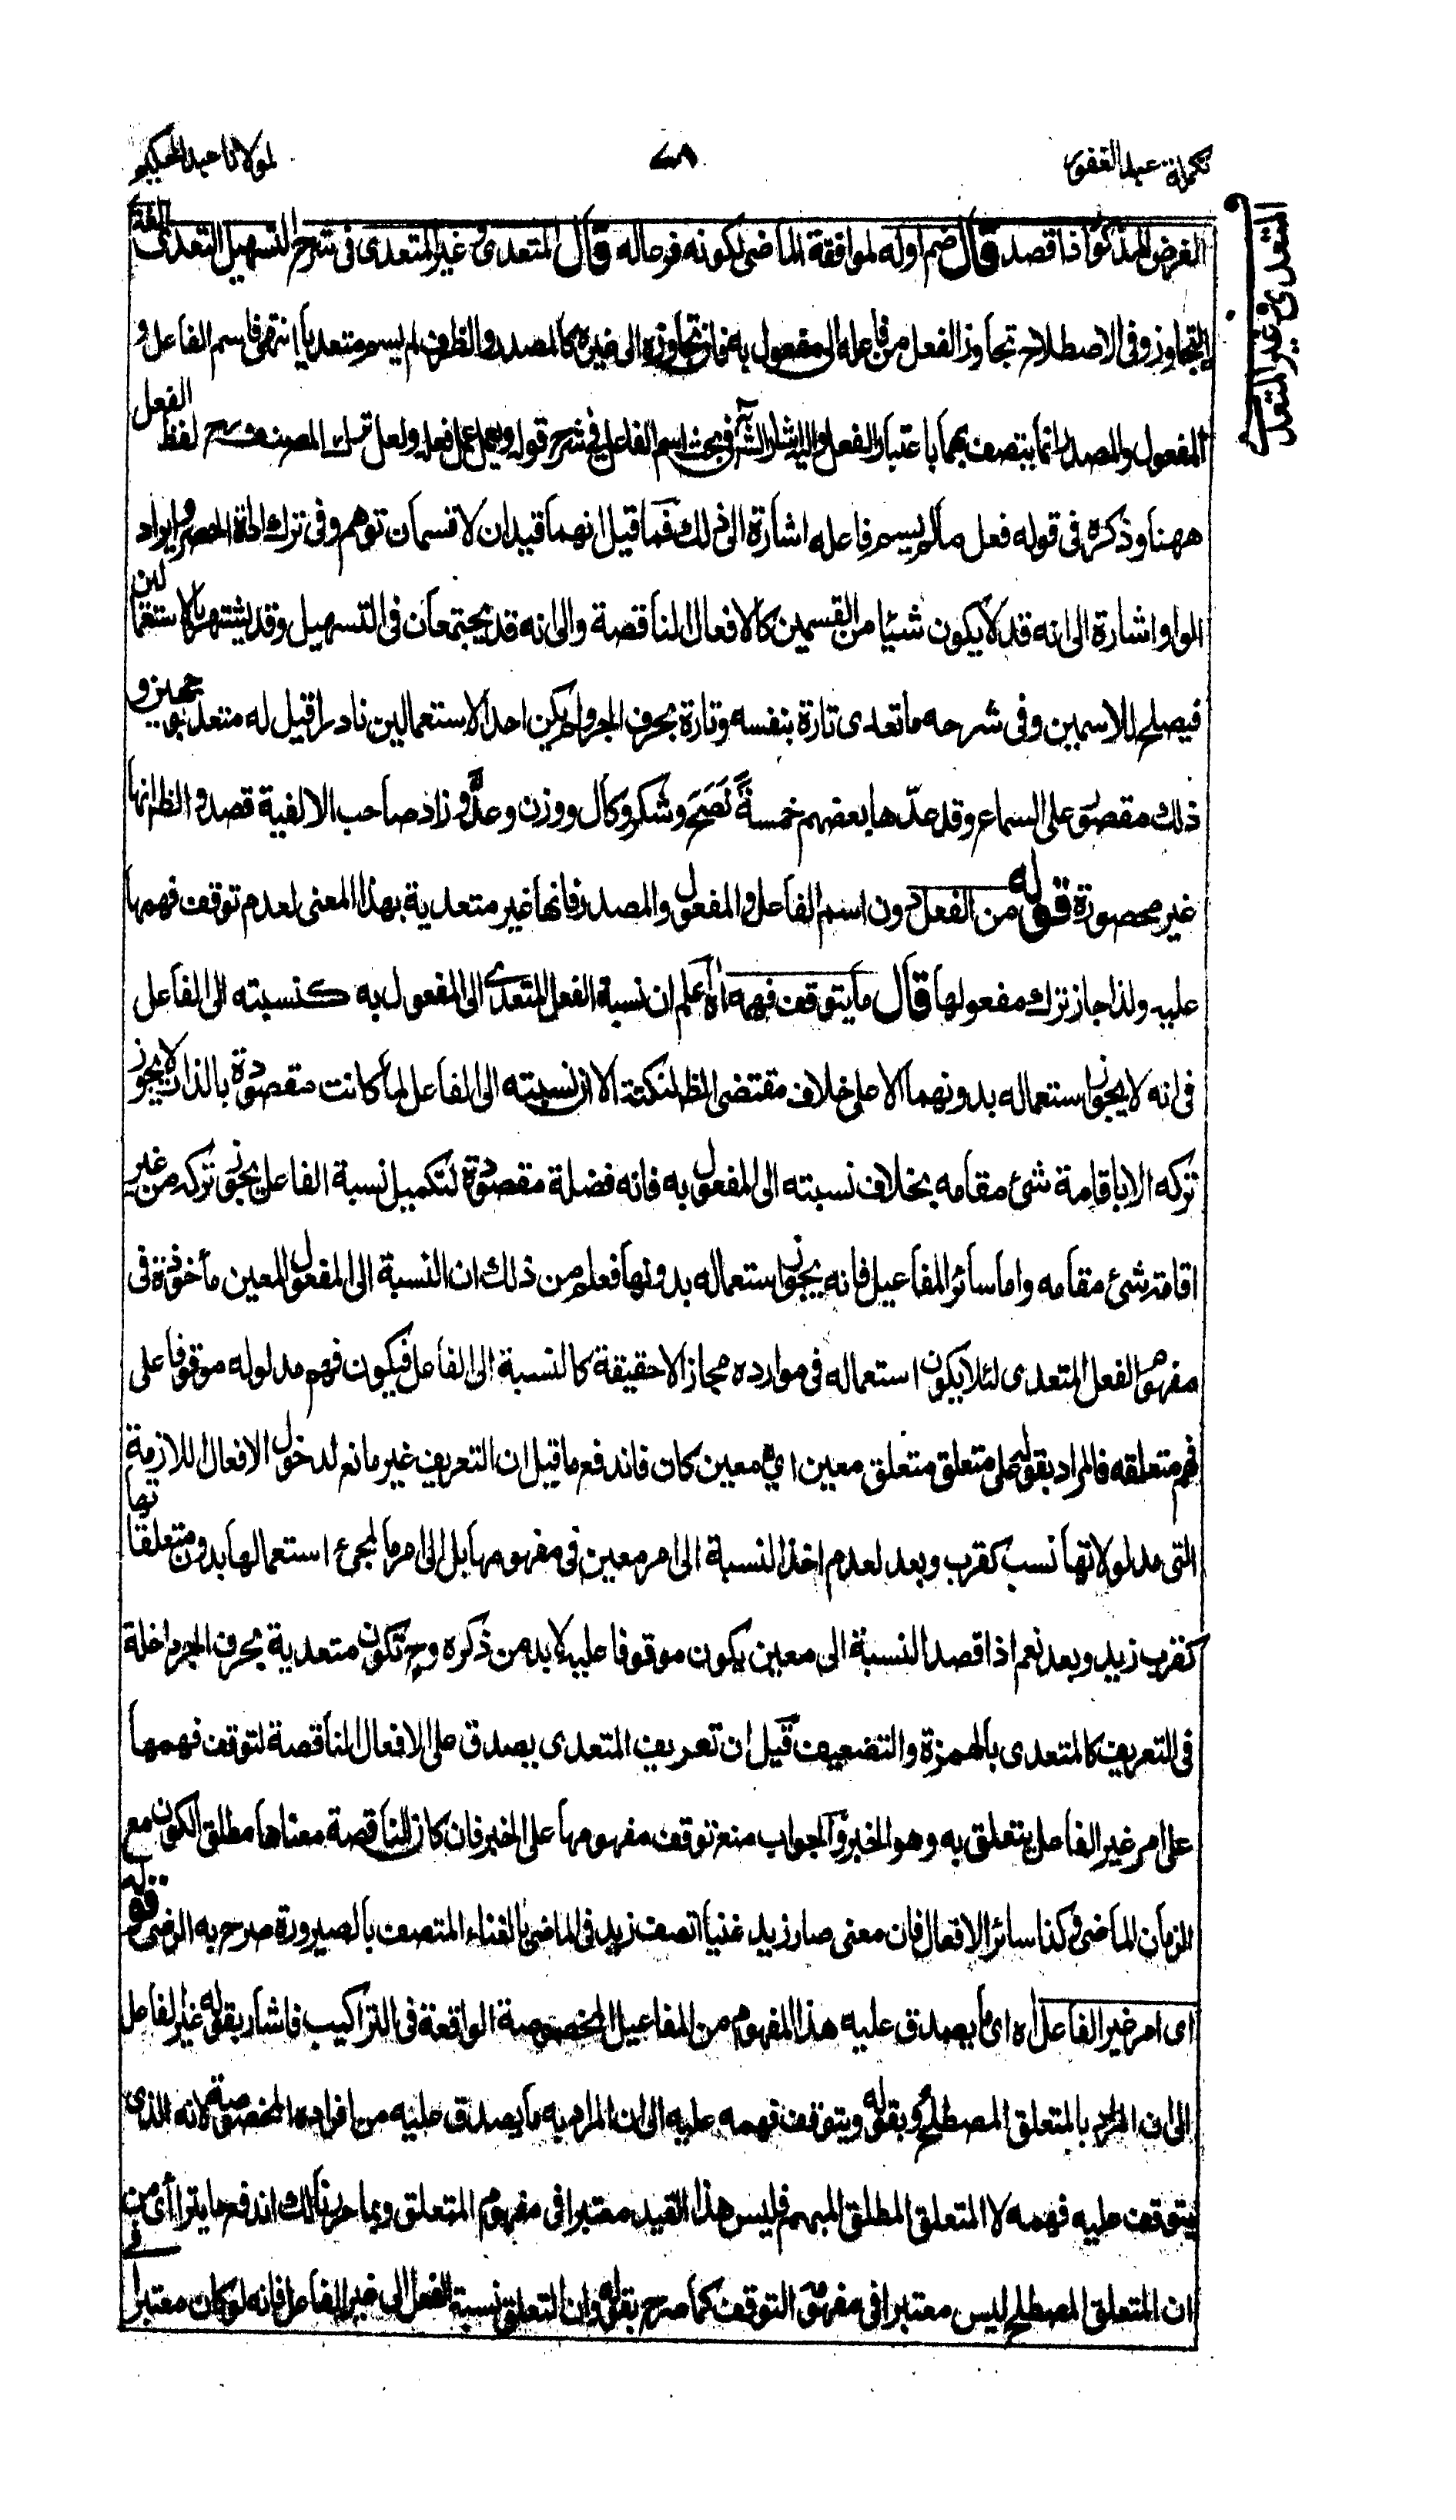 تكملة عبد الغفور
٧٨
لمولانا عبد الحكيم
المتعدي وغير المتعدي
الغرض المذكور فاقصد قال ضم اوله لموافقة الماضى لكونه فرعاله قال المتعدى وغير المتعدى فى شرح التسهيل التعدى لغة
التجاوز وفى الاصطلاح تجاوز الفعل من فاعله الى مفعول به فان تجاوزه الى غيره كالمصدر والظرف لم يسم متعديا انتهى فاسم الفاعل و
المفعول والمصدر انما يتصف بهما باعتبار الفعل واليه اشار الش فى بحث اسم الفاعل فى شرح قوله ويعمل عمل فعله ولعل ترك المصنف رح لفظ الفعل
ههنا وذكره فى قوله فعل مالم يسم فاعله اشارة الى ذلك فما قيل انهما قيدان لا قسمان توهم وفى ترك اداة الحصر وايراد
الواو اشارة الى انه قد لا يكون شيئا من القسمين كالافعال الناقصة والى انه قد يجتمعان فى التسهيل وقد يشتهر بالاستعمالين
فيصلح للاسمين وفى شرحه ما تعدى تارة بنفسه وتارة بحرف الجر ولم يكن احد الاستعمالين نادرا قيل له متعد بوجهين و
ذلك مقصور على السماع وقد عدّها بعضهم خمسة نَصَحَ وشكر وكال ووزن وعدّ وزاد صاحب الالفية قصد والظ انها
غير محصورة قوله من الفعل دون اسم الفاعل والمفعول والمصدر فانها غير متعدية بهذا المعنى لعدم توقف فهمها
عليه ولذا جاز ترك مفعولها قال ما يتوقف فهمه اه اعلم ان نسبة الفعل المتعدى الى المفعول به كنسبته الى الفاعل
فى انه لا يجوز استعماله بدونهما الا على خلاف مقتضى الظ لنكتة الا ان نسبته الى الفاعل لما كانت مقصودة بالذات لا يجوز
تركه الا باقامة شئ مقامه بخلاف نسبته الى المفعول به فانه فضلة مقصودة لتكميل نسبة الفاعل يجوز تركه من غير
اقامة شئ مقامه واما سائر المفاعيل فانه يجوز استعماله بدونها فعلم من ذلك ان النسبة الى المفعول المعين مأخوذة فى
مفهوم الفعل المتعدى لئلا يكون استعماله فى موارده مجازا لا حقيقة كالنسبة الى الفاعل فيكون فهم مدلوله موقوفا على
فهم متعلقه فالمراد بقوله على متعلق متعلق معين اى معين كان فاندفع ما قيل ان التعريف غير مانع لدخول الافعال اللازمة
التى مدلولاتها نسب كقرب وبعد لعدم اخذ النسبة الى امر معين فى مفهومها بل الى امر ما لمجئ استعمالها بدون متعلقاتها
كقرب زيد وبعد نعم اذا قصد النسبة الى معين يكون موقوفا عليه لابد من ذكره وح تكون متعدية بحرف الجر داخلة
فى التعريف كالمتعدى بالهمزة والتضعيف قيل ان تعريف المتعدى يصدق على الافعال الناقصة لتوقف فهمها
على امر غير الفاعل يتعلق به وهو الخبر والجواب منع توقف مفهومها على الخبر فان كان الناقصة معناها مطلق الكون مع
الزمان الماضى وكذا سائر الافعال فان معنى صار زيد غنيا اتصف زيد فى الماضى بالغناء المتصف بالصيرورة صرح به الرضى قوله
اى امر غير الفاعل اه اى ما يصدق عليه هذا المفهوم من المفاعيل المخصوصة الواقعة فى التراكيب فاشار بقوله غير الفاعل
الى ان المراد بالمتعلق المصطلح وبقوله ويتوقف فهمه عليه الى ان المراد به ما يصدق عليه من افراده المخصوصة لانه الذى
يتوقف عليه فهمه لا المتعلق المطلق المبهم فليس هذا القيد معتبرا فى مفهوم المتعلق وبما حررنا لك اندفع ما يتراأى من
ان المتعلق المصطلح ليس معتبرا فى مفهوم التوقف كما صرح بقوله وان التعلق نسبة الفعل الى غير الفاعل فانه لو كان معتبرا